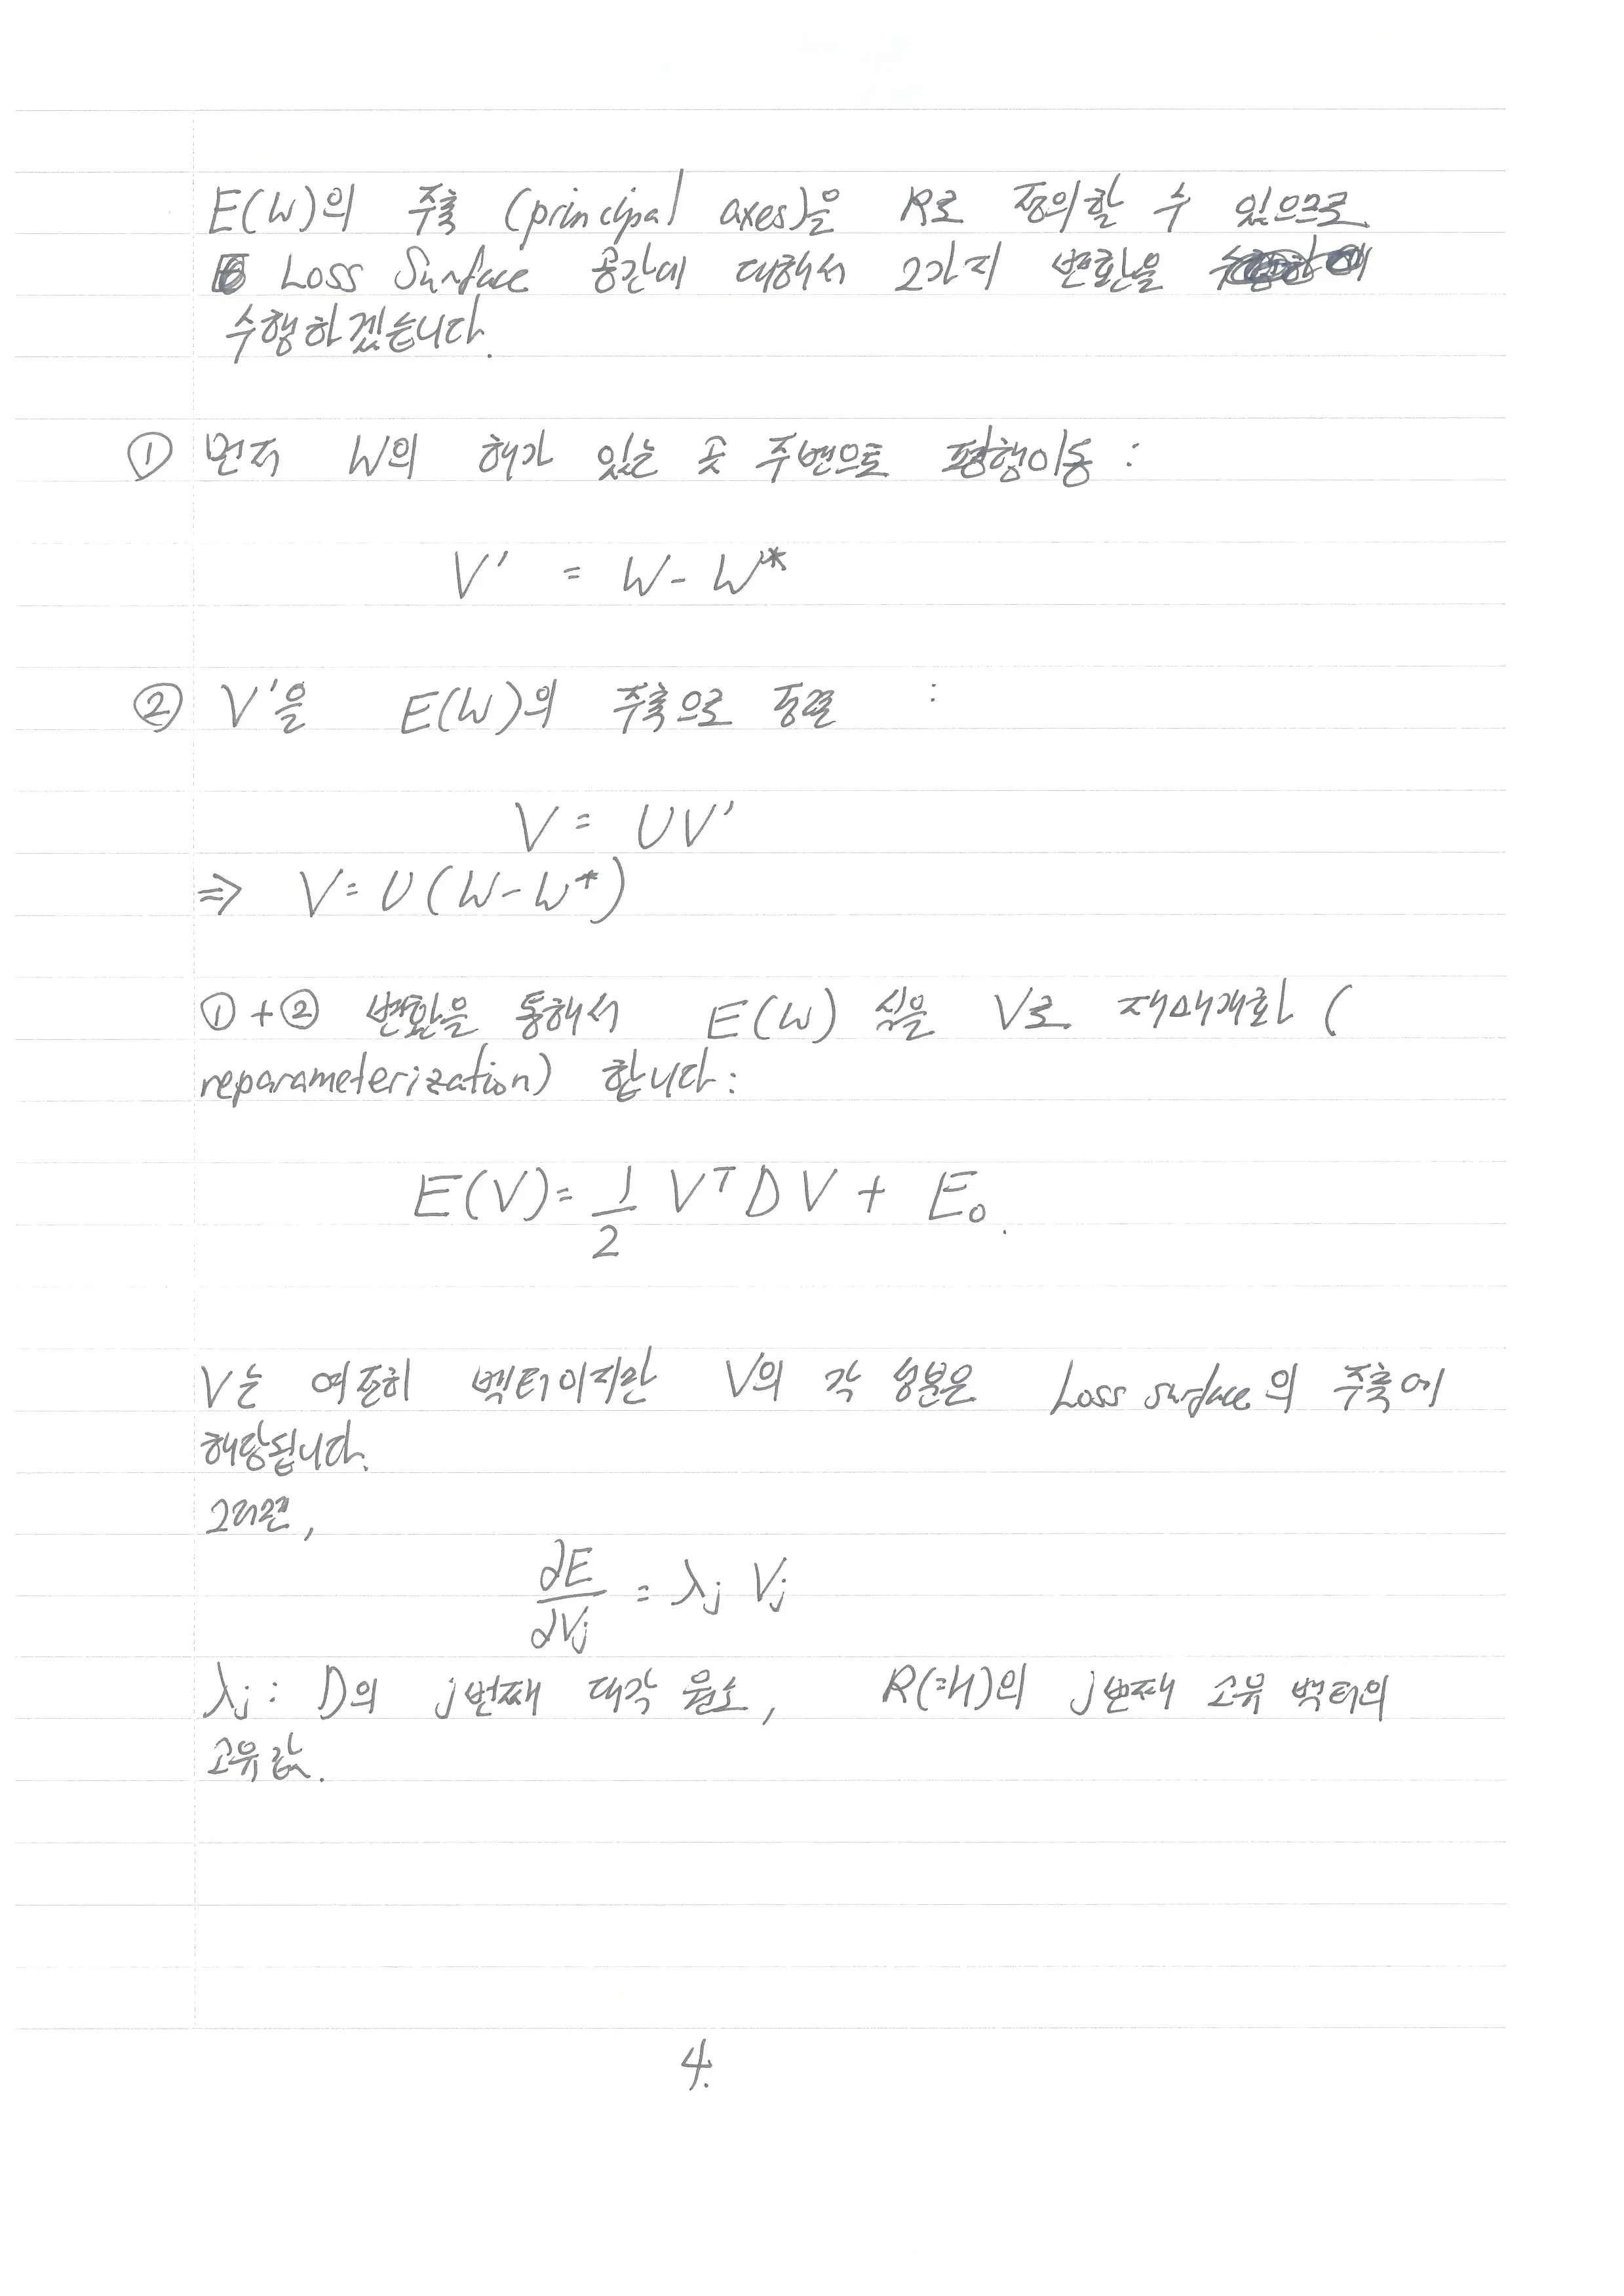 E(W)의 주축 (principal axes)을 R로 정의할 수 있으므로
Loss Surface 공간에 대해서 2가지 변환을
수행하겠습니다.
① 먼저 W의 해가 있는 곳 주변으로 평행이동 :
V' = W - W*
② V'을 E(W)의 주축으로 정렬 :
V = UV'
⇒ V = U(W - W*)
① + ② 변환을 통해서 E(W) 식을 V로 재매개화 (
reparameterization) 합니다:
E(V) = 1/2 VᵀDV + E₀.
V는 여전히 벡터이지만 V의 각 성분은 Loss surface의 주축에
해당됩니다.
그러면,
∂E/∂Vj = λj Vj
λj : D의 j번째 대각 원소, R(=H)의 j번째 고유 벡터의
고유값.
4.